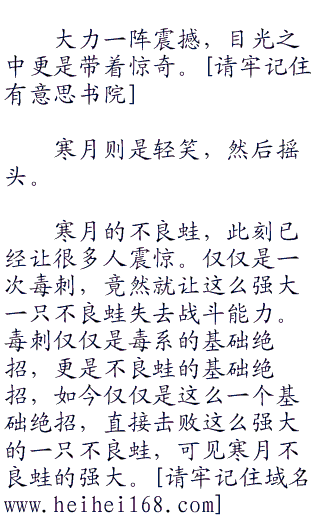 大力一阵震撼，目光之
中更是带着惊奇。[请牢记住
有意思书院]
寒月则是轻笑，然后摇
头。
寒月的不良蛙，此刻已
经让很多人震惊。仅仅是一
次毒刺，竟然就让这么强大
一只不良蛙失去战斗能力。
毒刺仅仅是毒系的基础绝
招，更是不良蛙的基础绝
招，如今仅仅是这么一个基
础绝招，直接击败这么强大
的一只不良蛙，可见寒月不
良蛙的强大。[请牢记住域名
www.heihei168.com]